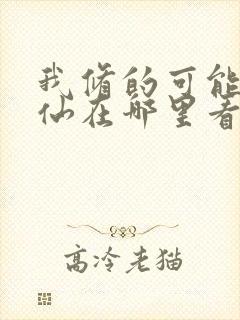 我修的可能
仙在哪里看
高冷老猫